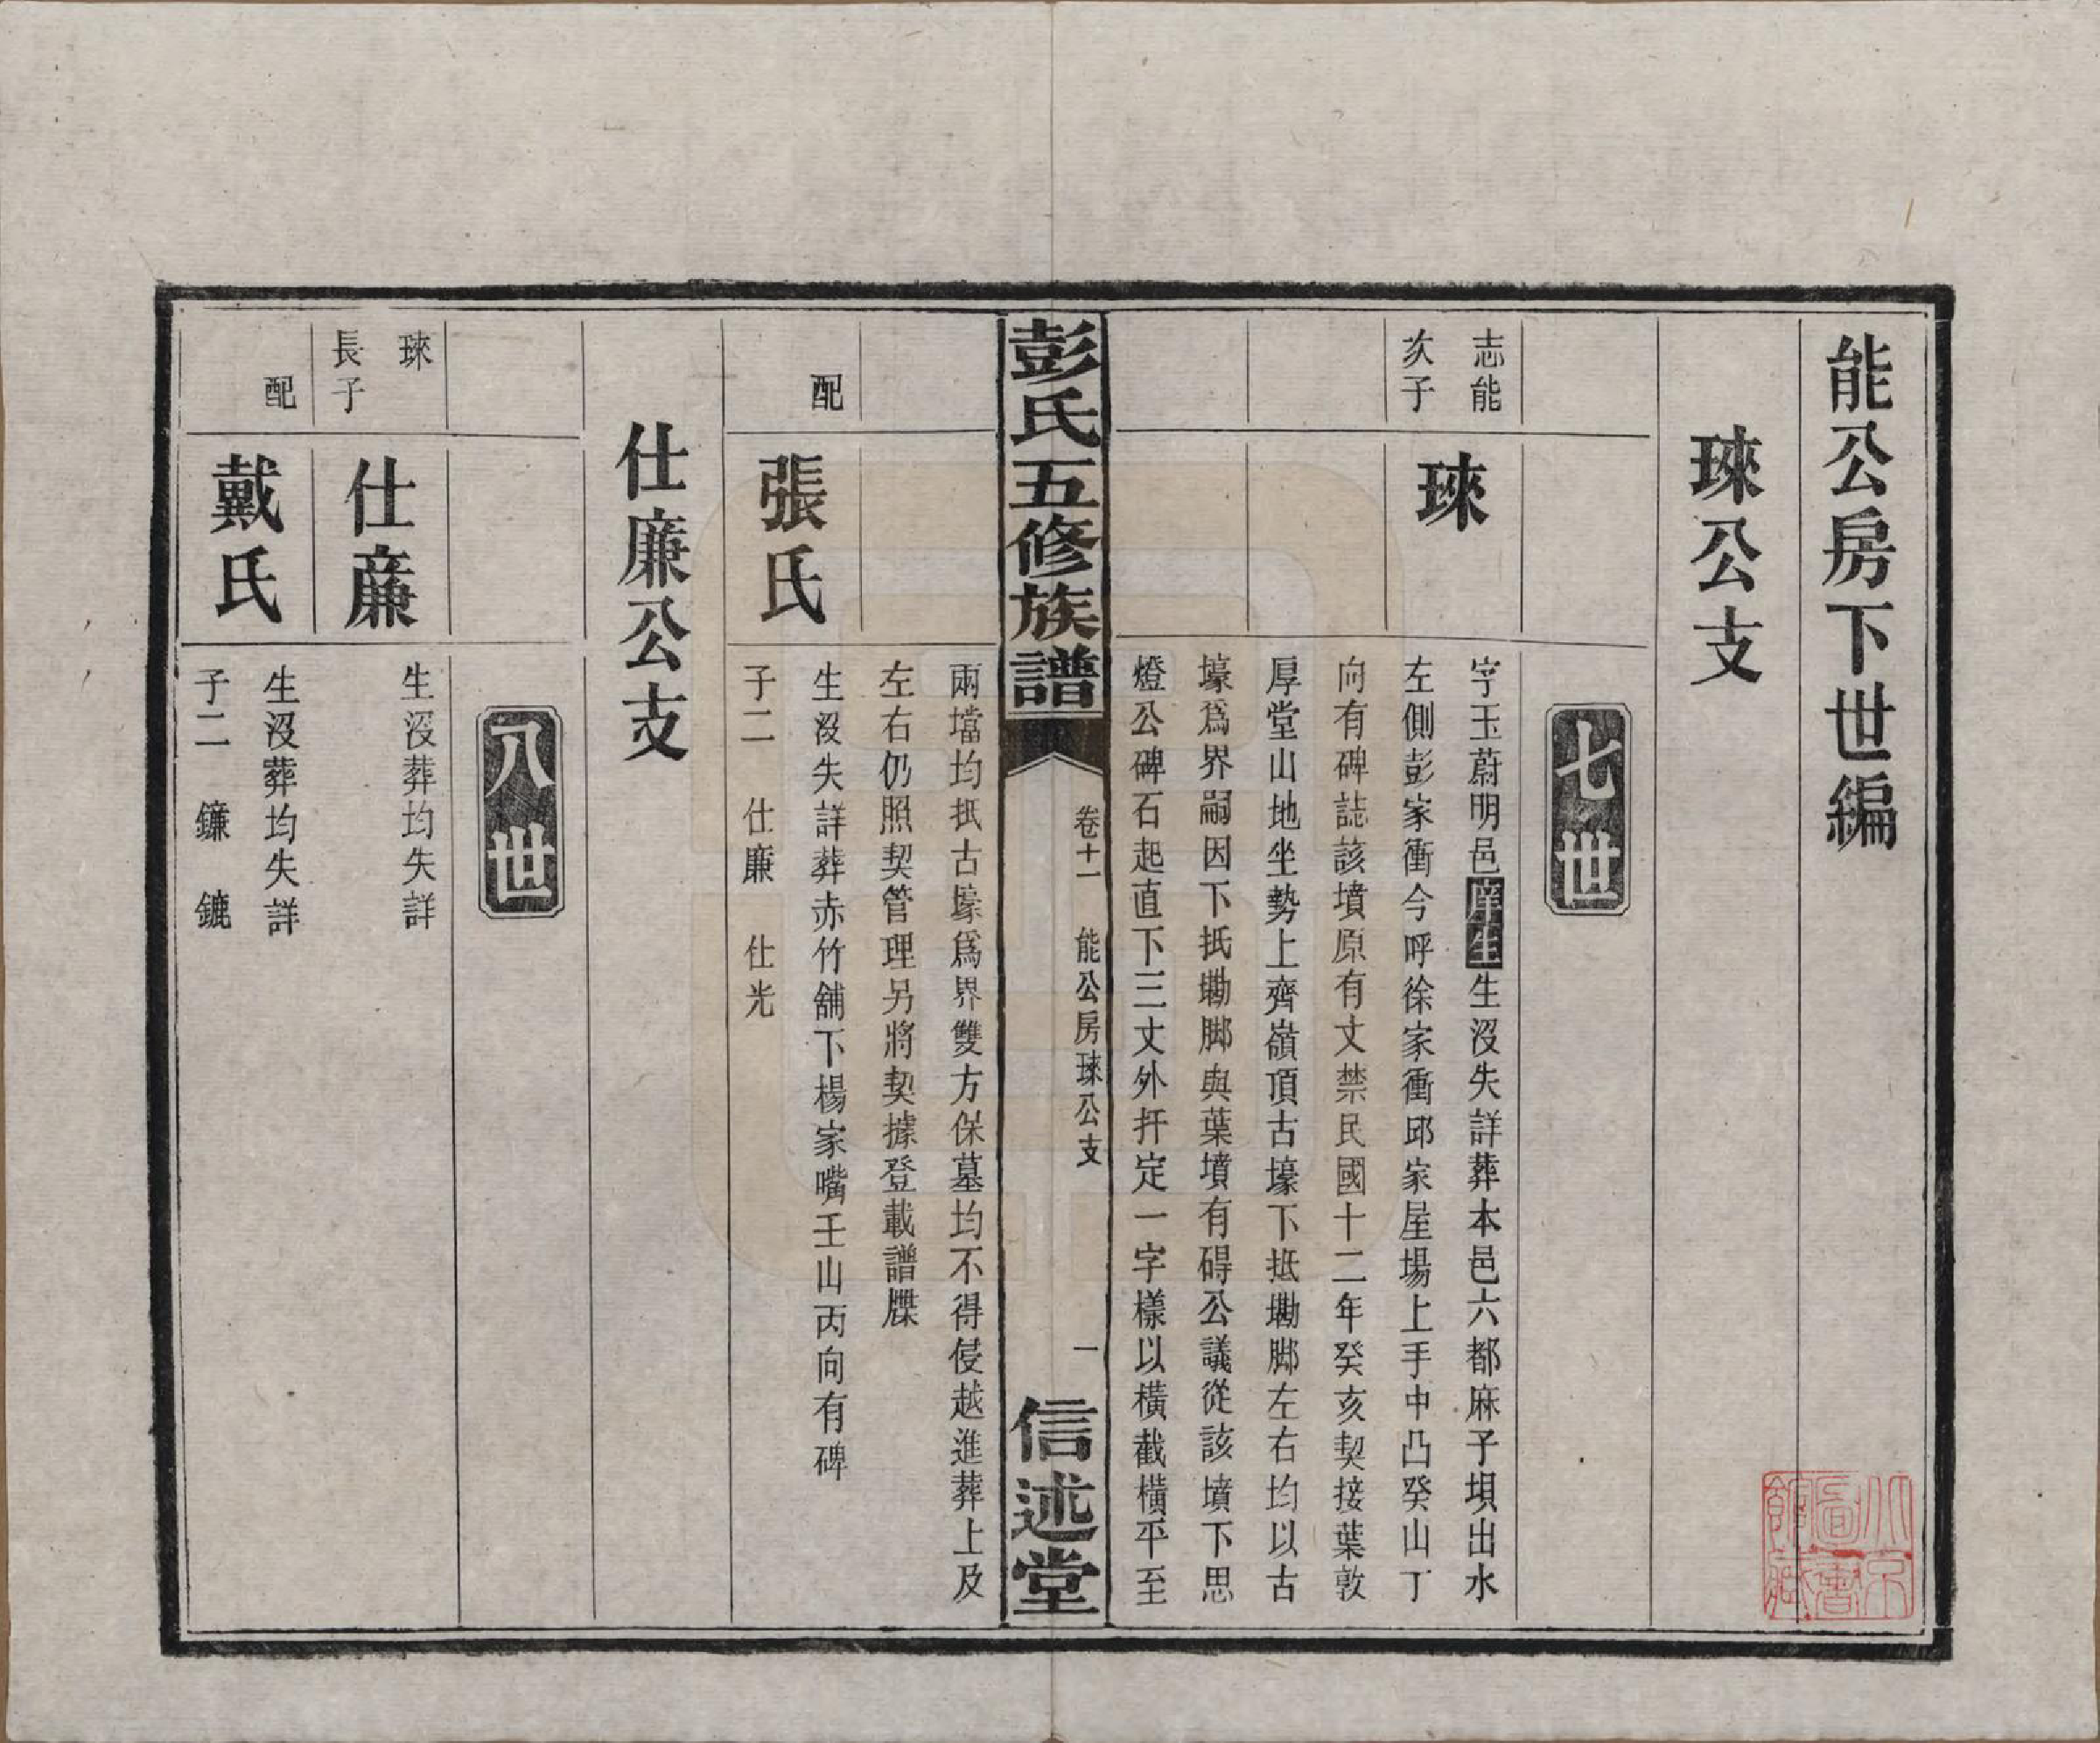 能公房下世編
琜公支
七世
志能
次子
琜
字玉蔚明邑庠生生沒失詳葬本邑六都麻子垻出水
左側彭家衝今呼徐家衝邱家屋場上手中凸癸山丁
向有碑誌該墳原有丈禁民國十二年癸亥契接葉敦
厚堂山地坐勢上齊嶺頂古壕下抵墈脚左右均以古
壕爲界嗣因下抵墈脚與葉墳有碍公議從該墳下思
燈公碑石起直下三丈外扦定一字樣以橫截橫平至
彭氏五修族譜
卷十一
能公房琜公支
一
信述堂
兩壋均抵古壕爲界雙方保墓均不得侵越進葬上及
左右仍照契管理另將契據登載譜牒
配
張氏
生沒失詳葬赤竹舖下楊家嘴壬山丙向有碑
子二 仕廉 仕光
仕廉公支
八世
琜
長子
仕廉
生沒葬均失詳
配
戴氏
生沒葬均失詳
子二 鐮 鏕
北京圖書館藏